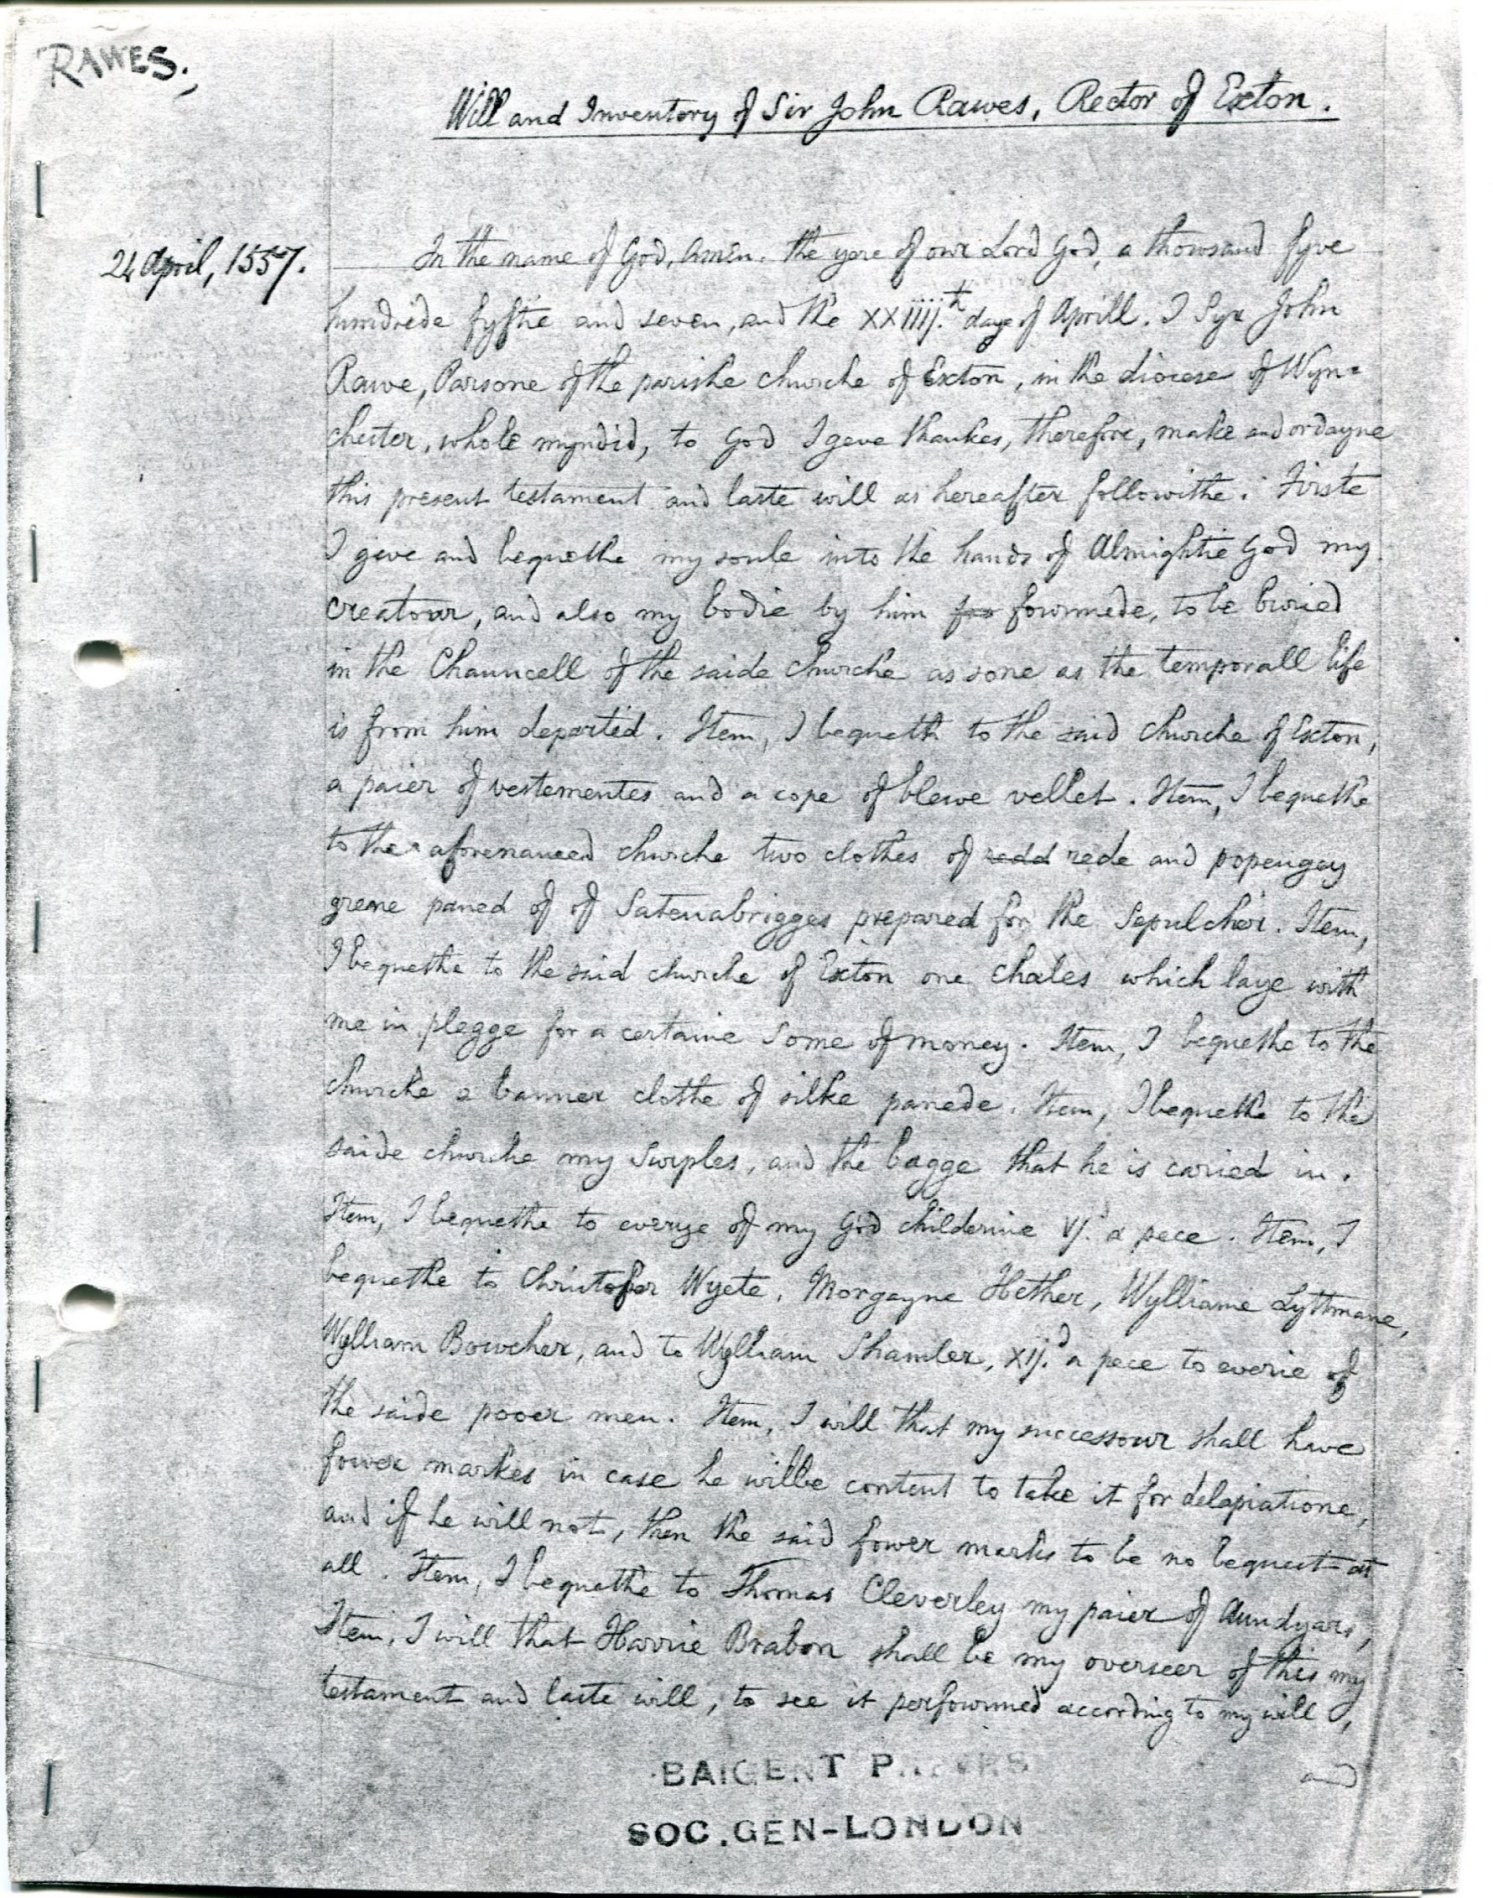 RAWES.,
Will and Inventory of Sir John Rawes, Rector of Exton.
24 April, 1557.
In the name of God, Amen. the yere of owr Lord God, a thowsand fyve
hundrede fyftie and seven, and the XXiiij.th daye of Aprill. I Syr John
Rawe, Parsone of the parishe churche of Exton, in the diocese of Wyn=
chester, whole myndid, to God I geve thankes, therefore, make and ordayne
this present testament and laste will as hereafter followithe. Firste
I geve and bequethe my soule into the hands of Almightie God my
Creatowr, and also my bodie by him fowrmede, to be buried
in the Chauncell of the saide churche as sone as the temporall life
is from him departed. Item, I bequeth to the said churche of Exton,
a paier of vestementes and a cope of blewe vellet. Item, I bequethe
to the aforenameed churche two clothes of redd rede and popengay
grene paned of of Satenabrigges prepared for the Sepulcher. Item,
I bequethe to the said churche of Exton one chales which laye with
me in plegge for a certaine some of money. Item, I bequethe to the
churche a banner clothe of silke panede. Item, I bequethe to the
saide churche my Surples, and the bagge that he is caried in.
Item, I bequethe to everye of my God childerine vj.d a pece. Item, I
bequethe to Christofer Wyete, Morgayne Hether, Wylliame Lyttmane,
Wylliam Bowcher, and to Wylliam Shamler, xij.d a pece to everie of
the saide pooer men. Item, I will that my successowr shall have
fower markes in case he wilbe content to take it for delapiatione,
and if he will not, then the said fower marks to be no bequest at
all. Item, I bequethe to Thomas Cleverley my paier of Aundyars,
Item, I will that Harrie Brabon shall be my overseer of this my
testament and laste will, to see it perfowrmed according to my will,
and
BAIGENT PAPERS
SOC.GEN-LONDON